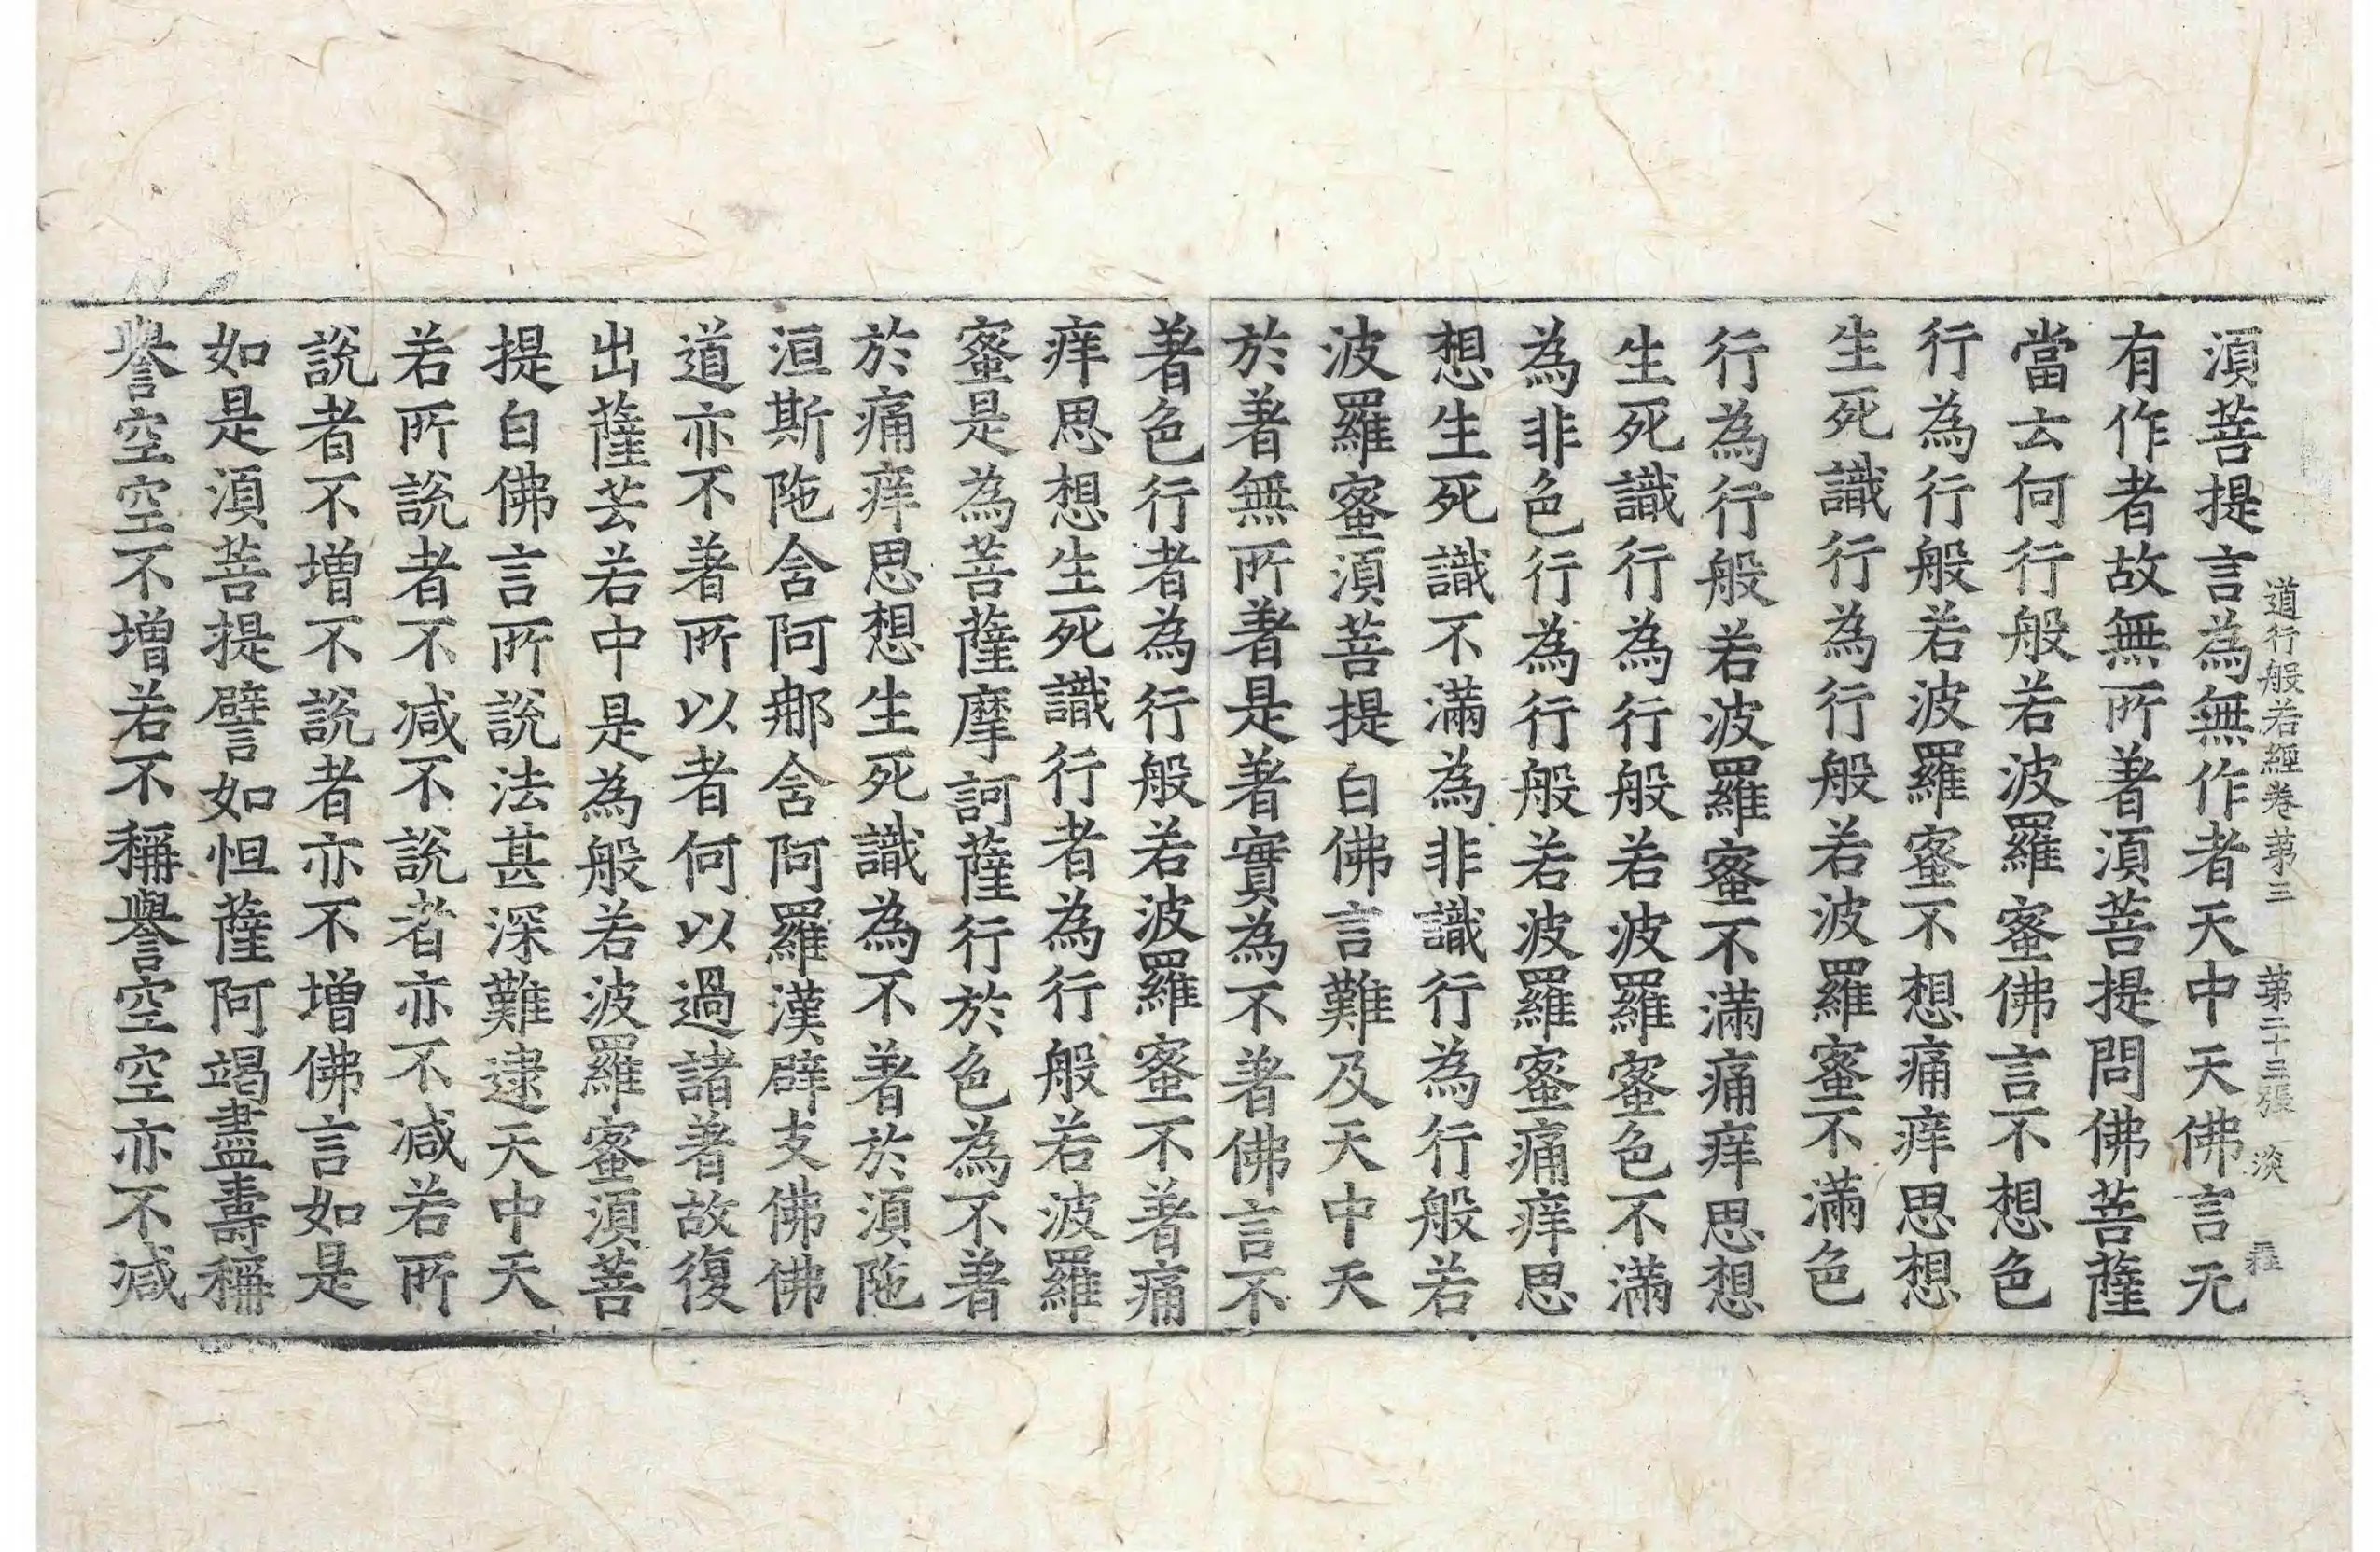 道行般若經卷苐三 苐二十三張 淡
湏菩提言為無作者天中天佛言无
有作者故無所著湏菩提問佛菩薩
當云何行般若波羅蜜佛言不想色
行為行般若波羅蜜不想痛痒思想
生死識行為行般若波羅蜜不滿色
行為行般若波羅蜜不滿痛痒思想
生死識行為行般若波羅蜜色不滿
為非色行為行般若波羅蜜痛痒思
想生死識不滿為非識行為行般若
波羅蜜湏菩提白佛言難及天中天
於著無所著是著實為不著佛言不
著色行者為行般若波羅蜜不著痛
痒思想生死識行者為行般若波羅
蜜是為菩薩摩訶薩行於色為不著
於痛痒思想生死識為不著於湏陁
洹斯陁含阿那含阿羅漢辟支佛佛
道亦不著所以者何以過諸著故復
出薩芸若中是為般若波羅蜜湏菩
提白佛言所說法甚深難逮天中天
若所說者不减不說者亦不减若所
說者不增不說者亦不增佛言如是
如是湏菩提譬如怛薩阿竭盡壽稱
譽空空不增若不稱譽空空亦不减